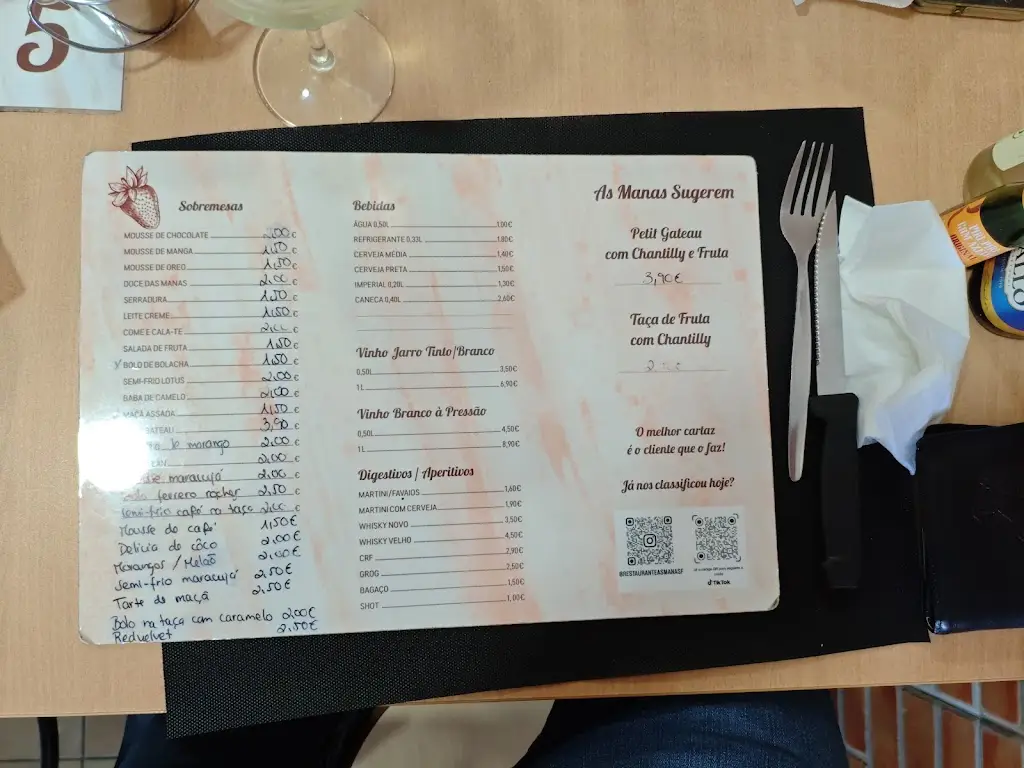 5
Sobremesas
MOUSSE DE CHOCOLATE 2,00 €
MOUSSE DE MANGA 1,50 €
MOUSSE DE OREO 1,50 €
DOCE DAS MANAS 2,00 €
SERRADURA 1,50 €
LEITE CREME 1,50 €
COME E CALA-TE 2,00 €
SALADA DE FRUTA 1,50 €
BOLO DE BOLACHA 1,50 €
SEMI-FRIO LOTUS 2,00 €
BABA DE CAMELO 2,00 €
MAÇÃ ASSADA 1,50 €
GATEAU 3,90 €
de morango 2,00 €
2,00 €
maracujá 2,00 €
ferrero rocher 2,50 €
Semi-frio café na taça 2,00 €
Mousse de café 1,50€
Delicia de côco 2,00€
Morangos / Melão 2,00€
Semi-frio maracujá 2,50€
Tarte de maçã 2,50€
Bolo na taça com caramelo 2,00€
Redvelvet 2,50€
Bebidas
ÁGUA 0,50L 1,00€
REFRIGERANTE 0,33L 1,80€
CERVEJA MÉDIA 1,40€
CERVEJA PRETA 1,50€
IMPERIAL 0,20L 1,30€
CANECA 0,40L 2,60€
Vinho Jarro Tinto/Branco
0,50L 3,50€
1L 6,90€
Vinho Branco à Pressão
0,50L 4,50€
1L 8,90€
Digestivos / Aperitivos
MARTINI/FAVAIOS 1,60€
MARTINI COM CERVEJA 1,90€
WHISKY NOVO 3,50€
WHISKY VELHO 4,50€
CRF 2,90€
GROG 2,50€
BAGAÇO 1,50€
SHOT 1,00€
As Manas Sugerem
Petit Gateau
com Chantilly e Fruta
3,90€
Taça de Fruta
com Chantilly
O melhor cartaz
é o cliente que o faz!
Já nos classificou hoje?
@RESTAURANTEASMANASF
TikTok